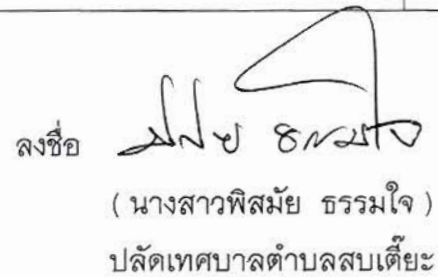 ลงชื่อ
( นางสาวพิสมัย ธรรมใจ )
ปลัดเทศบาลตำบลสบเตี๊ยะ